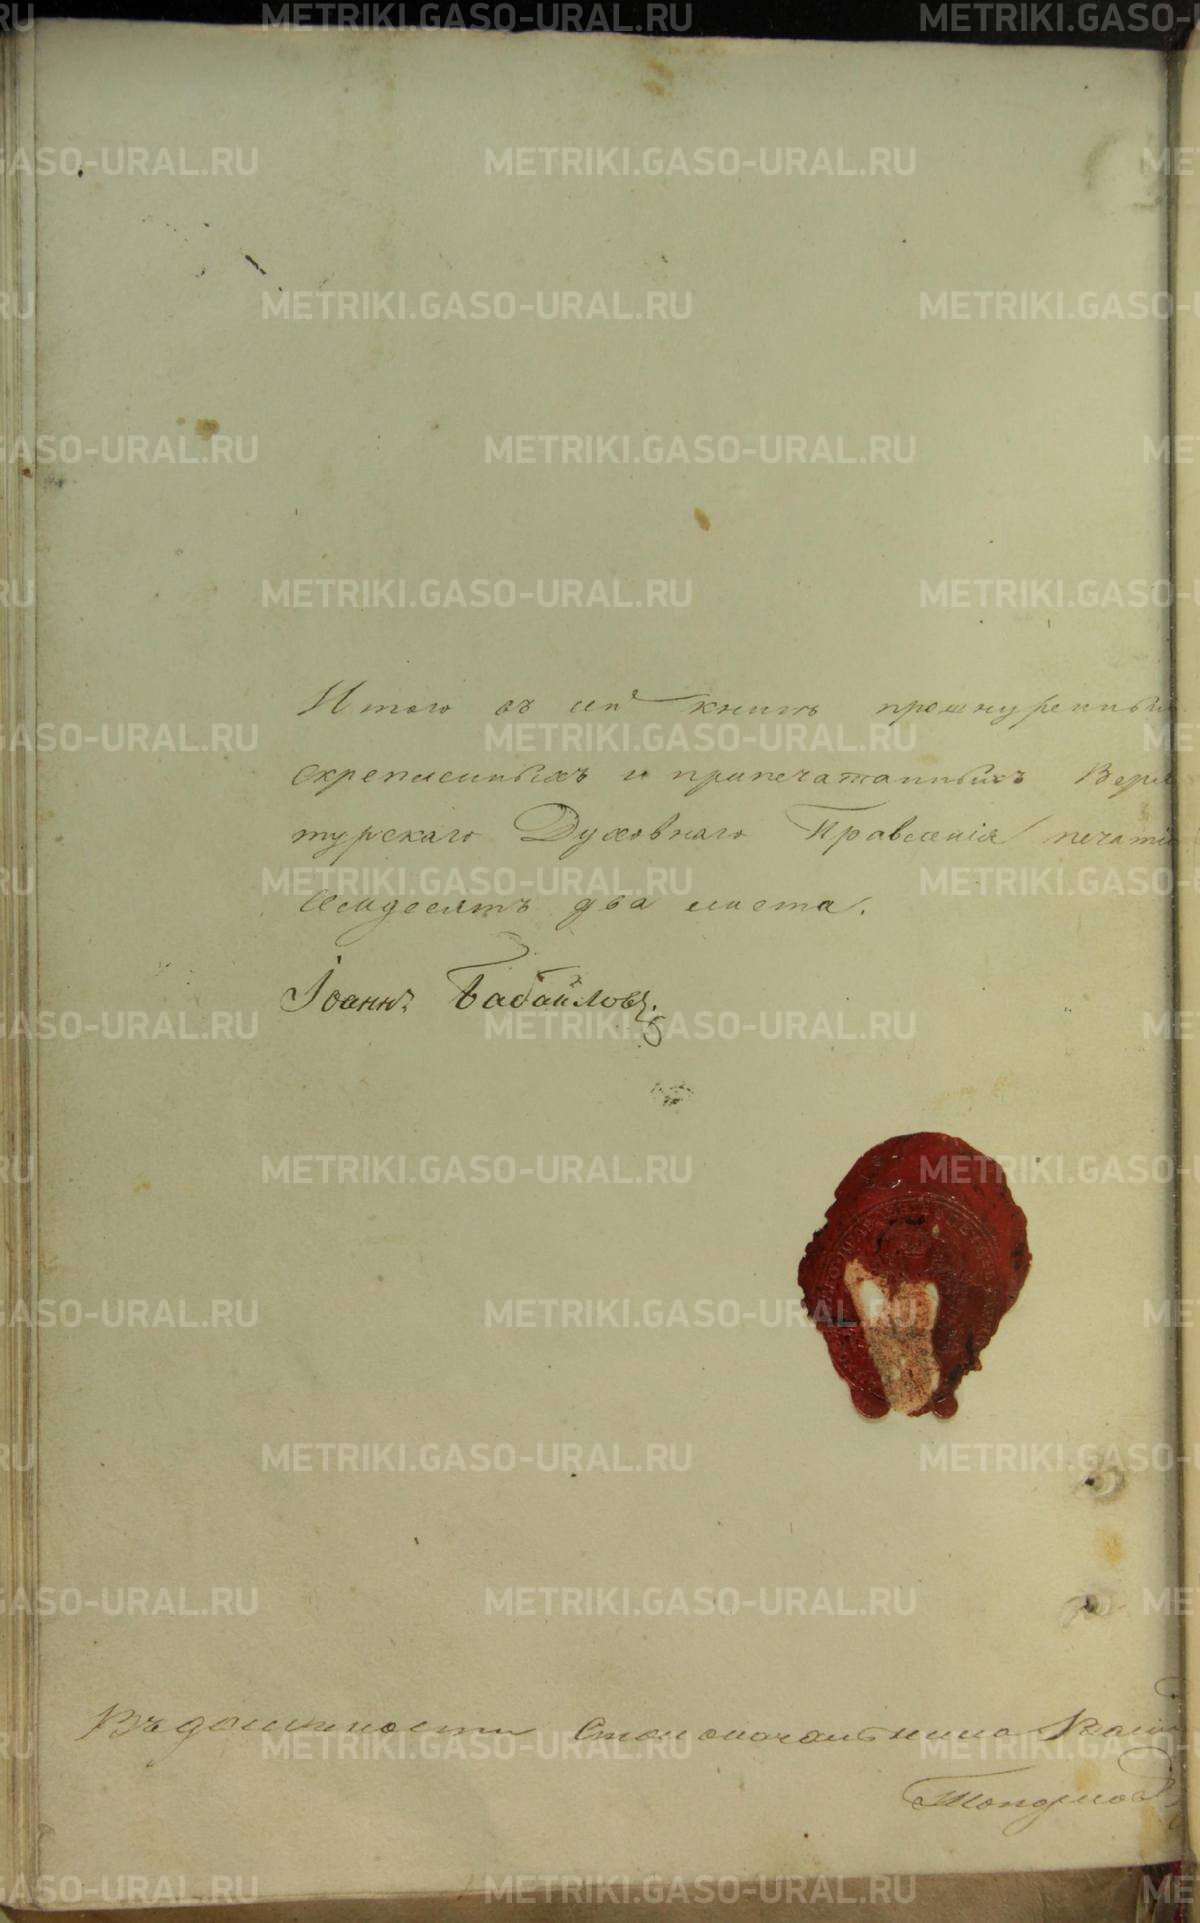 Итого въ сей книгѣ прошнуренныхъ
скрепленныхъ и припечатанныхъ Верхо
турскаго Духовнаго Правленія печатію
семдесятъ два листа.
Іоаннъ Бабайловъ.
Въ должности Столоначальника
METRIKI.GASO-URAL.RU